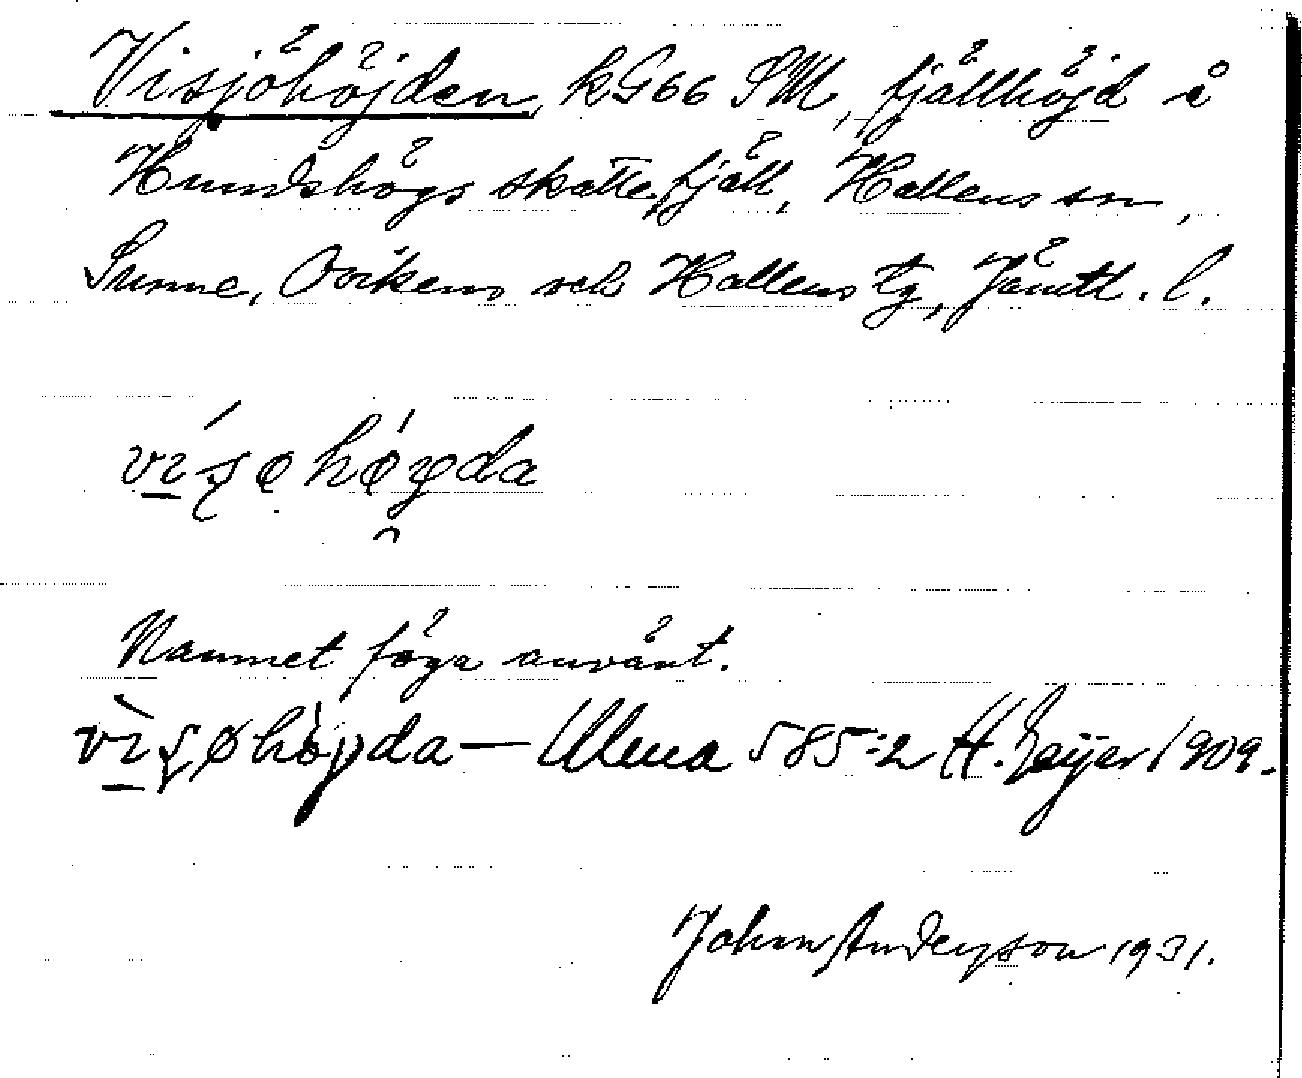 Visjöhöjden, kG66 SM, fjällhöjd å
Hundshögs skattefjäll, Hallens sn,
Sunne, Ovikens och Hallens tg, Jämtl. l.
Namnet föga använt.
— Ulma 585:2 H. Geijer 1909.
John Andersson 1931.